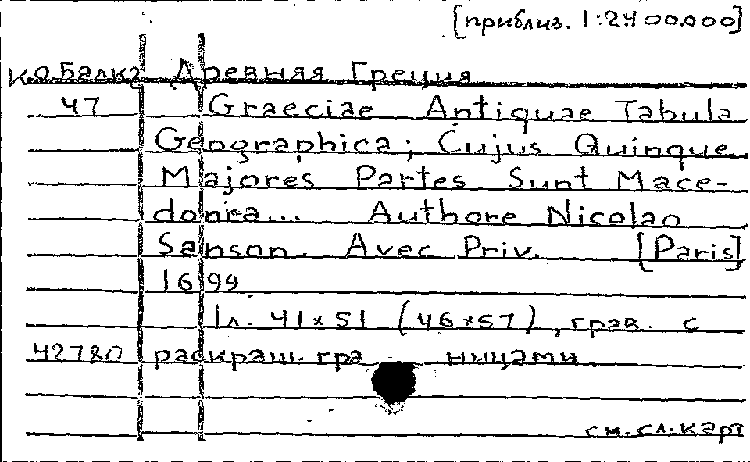 [приблиз. 1:2400.000]
Ко.Балк2 Древняя Греция
47 Graeciae Antiquae Tabula
Geographica; Cujus Quinque
Majores Partes Sunt Mace-
donia... Authore Nicolao
Sanson. Avec Priv. [Paris]
1699
1л. 41x51 (46x57), грав. с
42780 раскраш. границами.
см.сл.карт